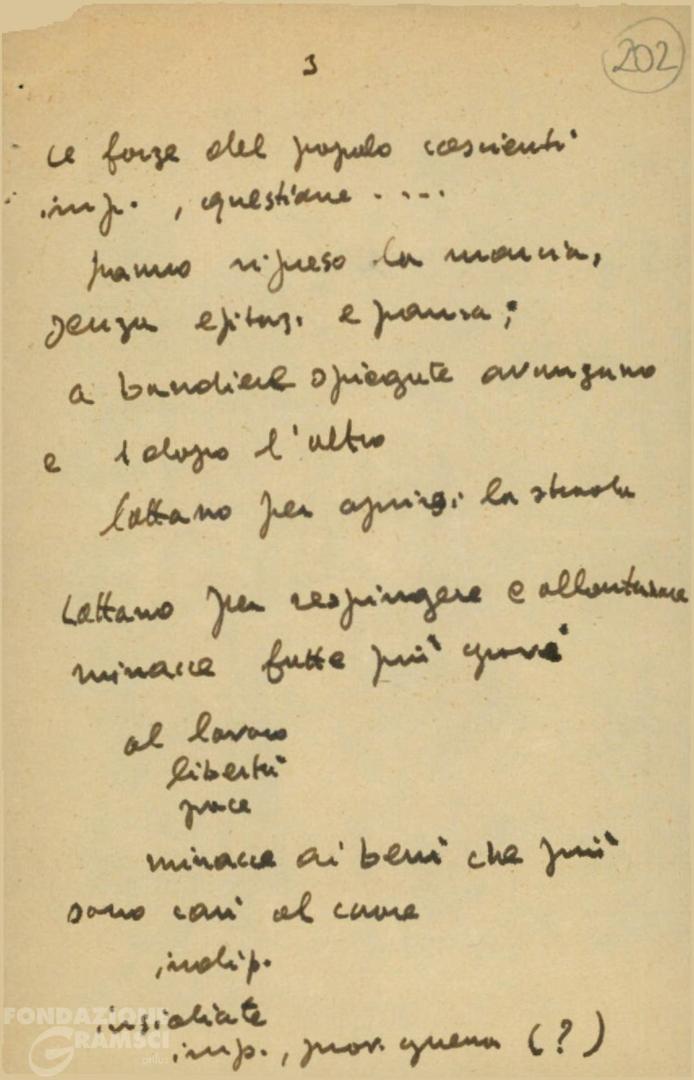 3
202
le forze del popolo coscienti
imp., questione ....
hanno ripreso la marcia,
senza epitesi e paura;
a bandiere spiegate avanzano
e 1 dopo l'altro
lottano per aprirsi la strada
Lottano per respingere e allontanare
minacce fatte più gravi
al lavoro
libertà
pace
minacce ai beni che più
sono cari al cuore
indip.
insidiate
imp., prov. guerra (?)
FONDAZIONE
GRAMSCI
onlus